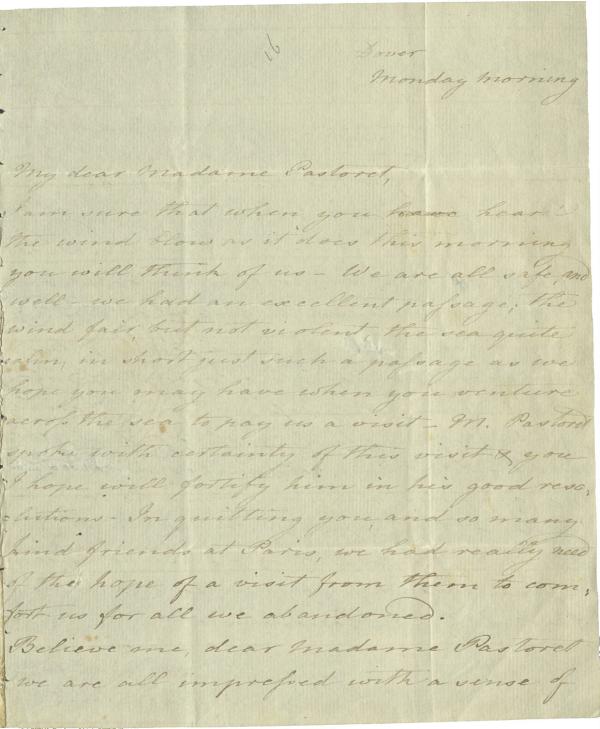 16
Dover
Monday Morning
My dear Madame Pastoret,
I am sure that when you have hear
the wind blow as it does this morning
you will think of us – We are all safe and
well – we had an excellent passage; the
wind fair but not violent the sea quite
calm, in short just such a passage as we
hope you may have when you venture
across the sea to pay us a visit – M. Pastoret
spoke with certainty of this visit & you
I hope will fortify him in his good reso:
:lutions – In quitting you and so many
kind friends at Paris, we had really need
of the hope of a visit from them to com:
fort us for all we abandoned.
Believe me, dear Madame Pastoret
we are all impressed with a sense of